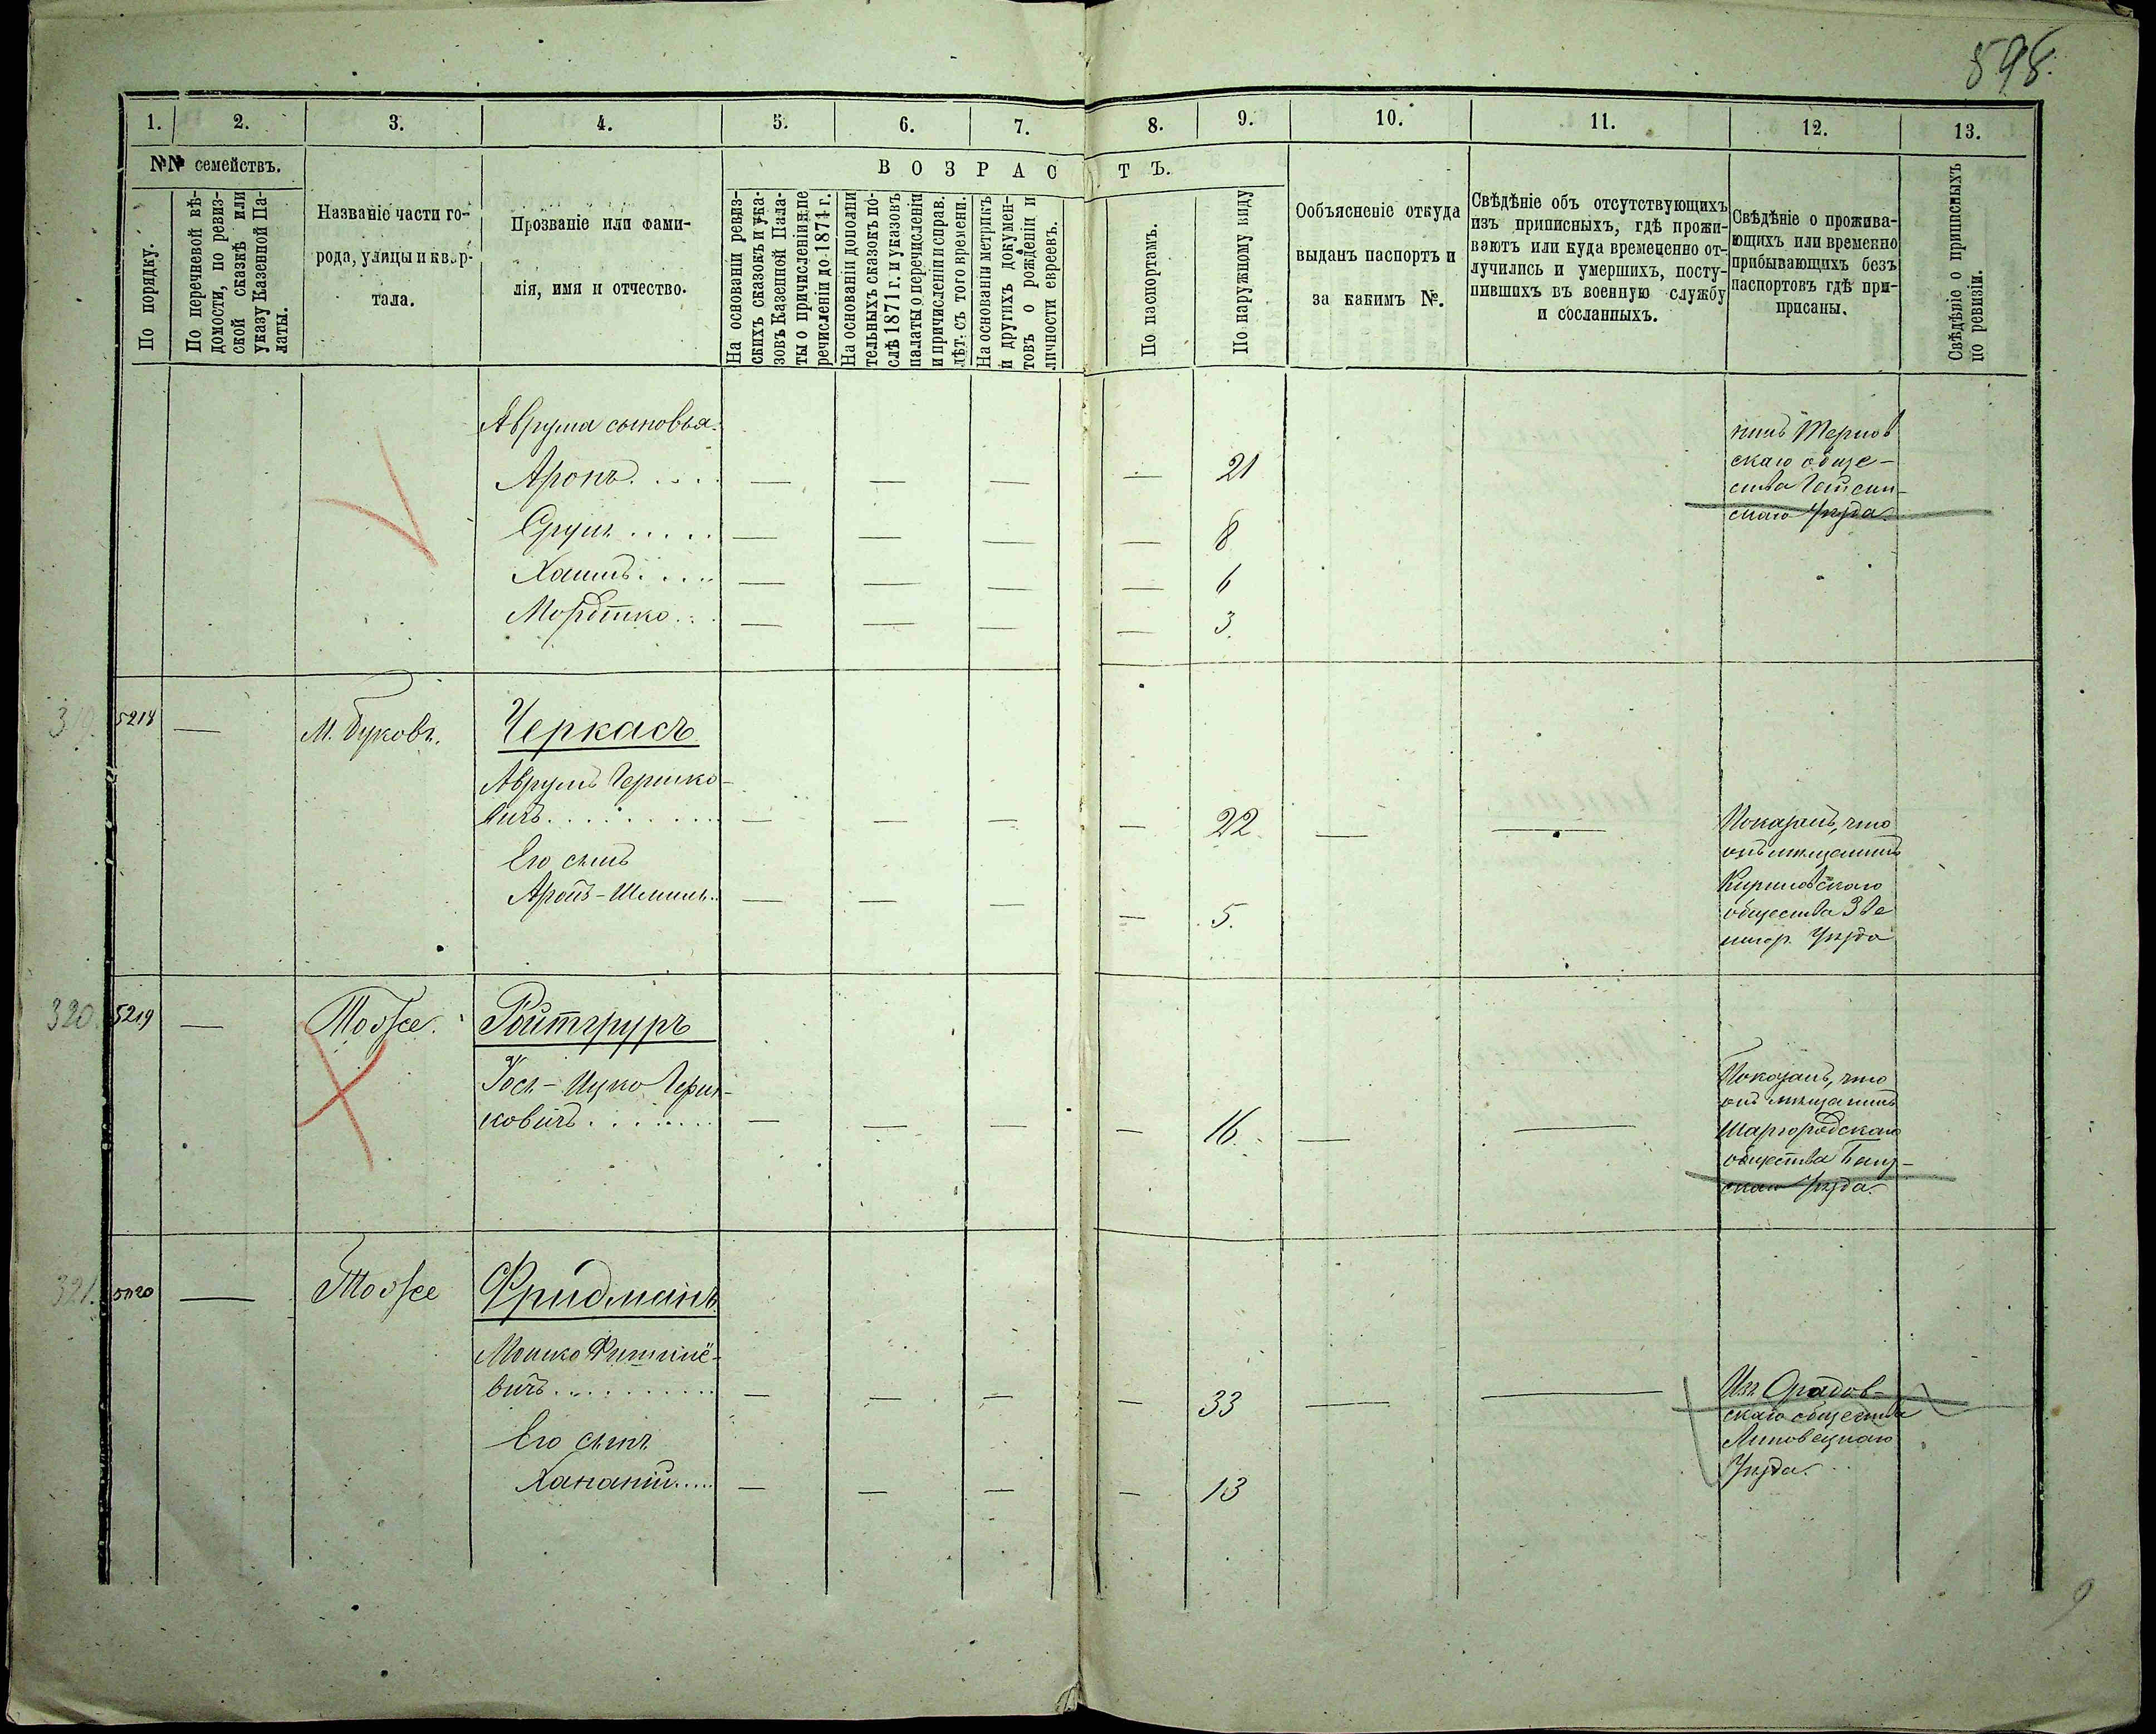 598.
1. 2. 3. 4. 5. 6. 7. 8. 9. 10. 11. 12. 13.
№№ семействъ.
По порядку.
По перечневой вѣ-
домости, по ревиз-
ской сказкѣ или
указу Казенной Па-
латы.
Названіе части го-
рода, улицы и квар-
тала.
Прозваніе или фами-
лія, имя и отчество.
ВОЗРАСТЪ.
На основаніи ревиз-
скихъ сказокъ и ука-
зовъ Казенной Пала-
ты о причисленіи и пе
речисленіи до 1874 г.
На основаніи дополни
тельныхъ сказокъ по-
слѣ 1871 г. и указовъ
палаты о перечисленіи
и причисленіи и справ.
лѣт. съ того времени.
На основаніи метрикъ
и другихъ докумен-
товъ о рожденіи и
личности евреевъ.
По паспортамъ.
По наружному виду
Ообъясненіе откуда
выданъ паспортъ и
за какимъ №.
Свѣдѣніе объ отсутствующихъ
изъ приписныхъ, гдѣ прожи-
ваютъ или куда временно от-
лучились и умершихъ, посту-
пившихъ въ военную службу
и сосланныхъ.
Свѣдѣніе о прожива-
ющихъ или временно
прибывающихъ безъ
паспортовъ гдѣ при-
писаны.
Свѣдѣніе о приписныхъ
по ревизіи.
Аврума сыновья:
нинъ Тернов
скаго обще-
ства Гайсин-
скаго Уѣзда.
Аронъ..... — — — — 21
Сруль..... — — — — 8
Хаимъ.... — — — — 6
Мордтко... — — — — 3.
319. 5218 — М. Буковъ. Черкасъ
Аврумъ Гершко-
вичъ......... — — — — 22 — —
Его сынъ
Аронъ-Шмиль.. — — — — 5.
Показалъ, что
онъ мѣщанинъ
Кириловскаго
общества Зве
нигор. Уѣзда
320. 5219 — Тоже. Ройтгруръ
Іось-Ицко Герш-
ковичъ........ — — — — 16. — —
Показалъ, что
онъ мѣщанинъ
Шаргородскаго
общества
Уѣзда.
321. 5220 — Тоже Фридманъ
Мошко Фишилё-
вичъ.......... — — — — 33 — —
Его сынъ
Хананій..... — — — — 13
Изъ Орадов-
скаго общества
Липовецкаго
Уѣзда.